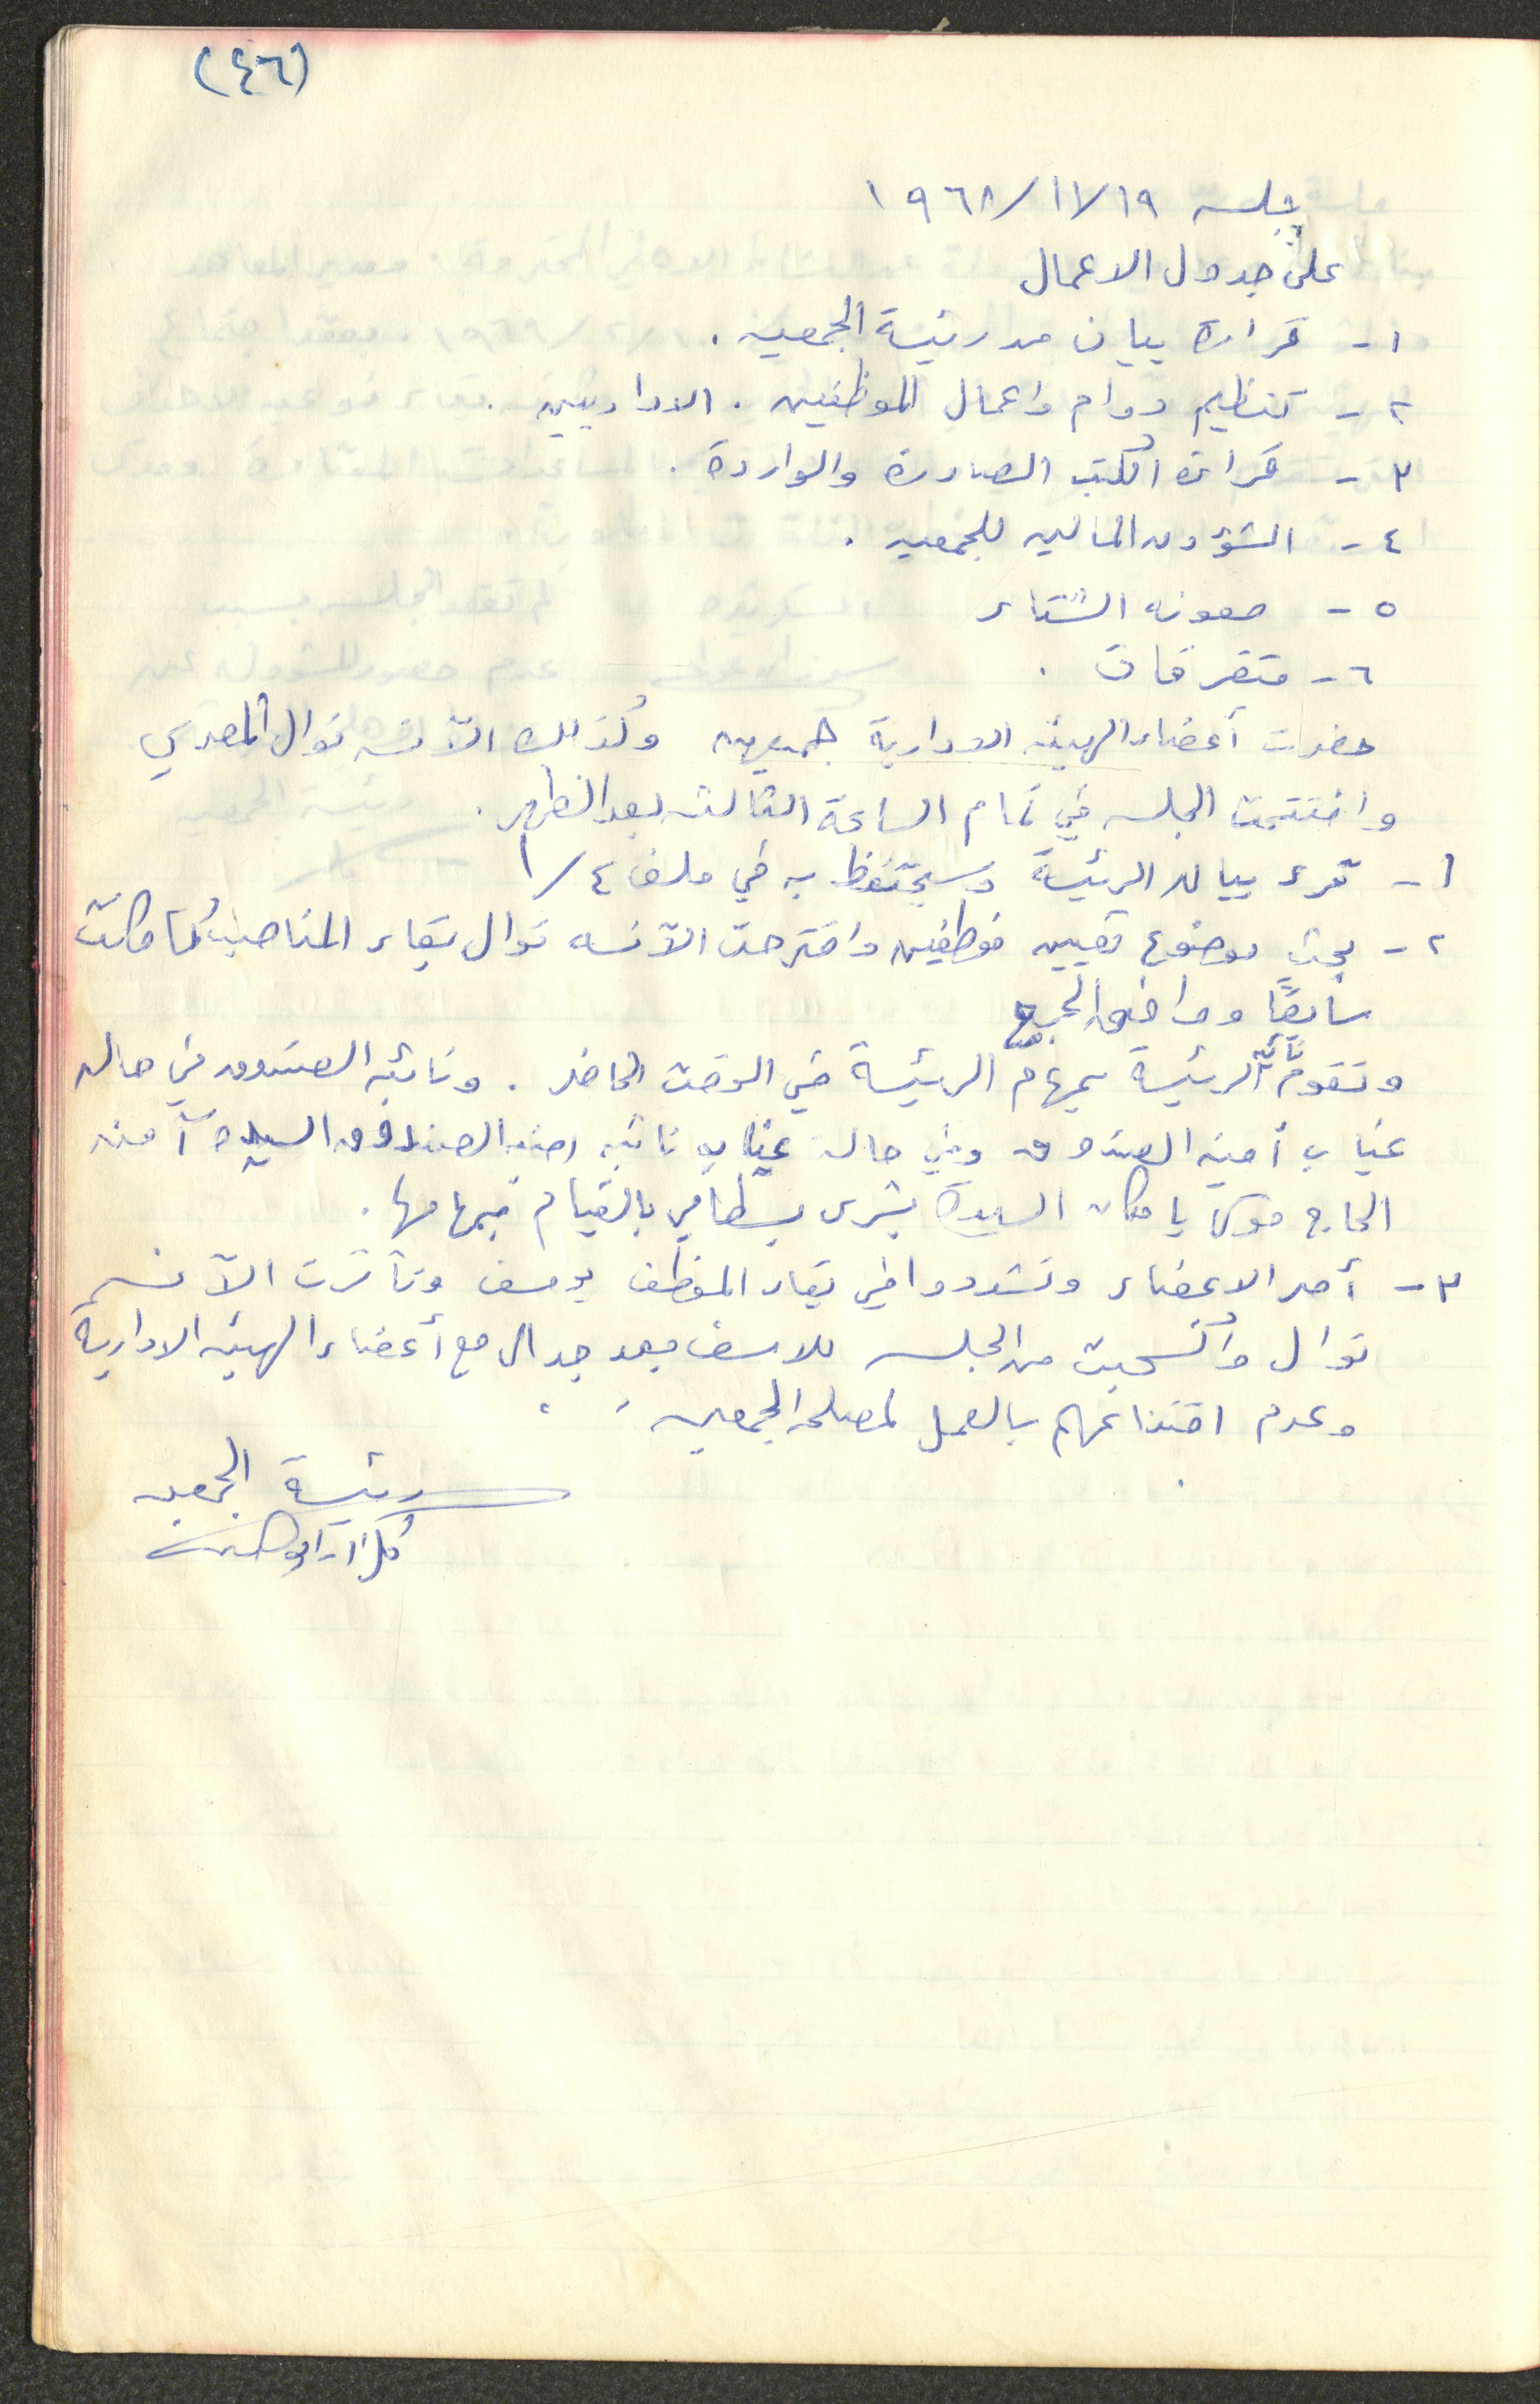 (٤٦)
جلسه ١٩/١١/١٩٦٨
على جدول الاعمال
١- قراءة بيان من رئيسة الجمعيه .
٢- تنظيم دوام واعمال الموظفين . الاداريين .
٣- قراءة الكتب الصادرة والواردة .
٤- الشؤون الماليه للجمعيه .
٥- معونه الشتاء
٦- متفرقات .
حضرت أعضاء الهيئه الادارية جميعهن وكذلك الآنسه نوال المصري
وافتتحت الجلسه في تمام الساعة الثالثه بعد الظهر .
١- قرء بيان الرئيسة وسيحتفظ به في ملف ٤/١
٢- بحث موضوع تعيين موظفين واقترحت الآنسه نوال بقاء المناصب كما كانت
سابقاً ووافق الجميع
وتقوم نائبة الرئيسة بمهام الرئيسة في الوقت الحاضر . ونائبه الصندوق في حاله
غياب أمينه الصندوق وفي حاله غياب نائبه امينه الصندوق السيدة آمنه
الحاج موسى يا مكان السيدة يشرى بسطامي بالقيام بمهامها .
٣- أصر الاعضاء وتشددوا في بقاء الموظف يوسف وتأثرت الآنسه
نوال وانسحبت من الجلسه للاسف بعد جدال مع أعضاء الهيئه الادارية
وعدم اقتناعهم بالعمل لمصلحه الجمعيه .
رئيسة الجمعيه